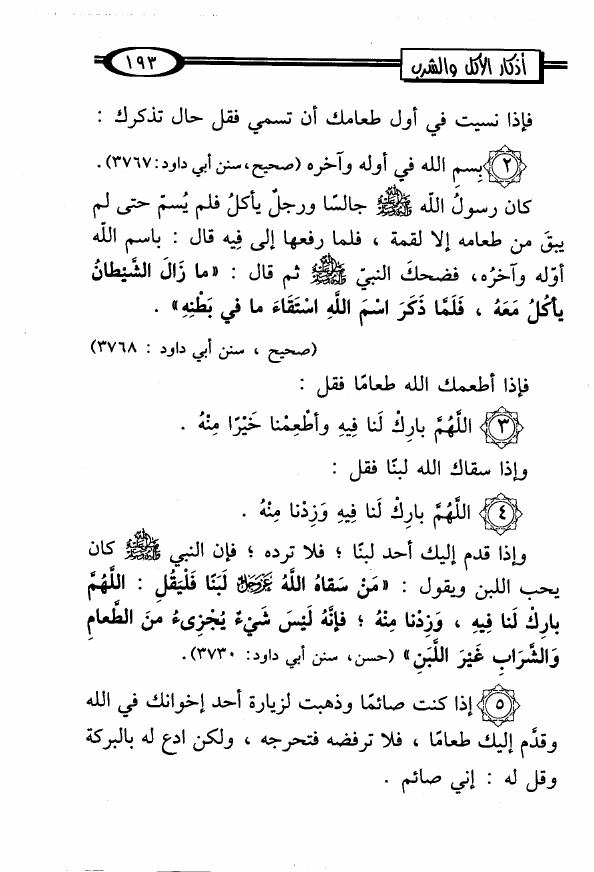 أذكار الأكل والشرب
١٩٣
فإذا نسيت في أول طعامك أن تسمي فقل حال تذكرك :
٢ بِسمِ الله في أوله وآخره (صحيح، سنن أبي داود: ٣٧٦٧).
كان رسولُ اللّه ﷺ جالسًا ورجلٌ يأكلُ فلم يُسمّ حتى لم
يبقَ من طعامه إلا لقمة ، فلما رفعها إلى فِيه قال : باسم الله
أوّله وآخرُه، فضحكَ النبيّ ﷺ ثم قال : «ما زَالَ الشَّيْطانُ
يأكُلُ مَعَهُ ، فَلَمَّا ذَكَرَ اسْمَ اللَّهِ اسْتَقَاءَ ما في بَطْنِهِ» .
(صحيح ، سنن أبي داود : ٣٧٦٨)
فإذا أطعمك الله طعامًا فقل :
٣ اللَّهُمَّ بارِكْ لَنا فِيهِ وأطْعِمْنا خَيْرًا مِنْهُ .
وإذا سقاك الله لبنًا فقل :
٤ اللَّهُمَّ بارِكْ لَنا فِيهِ وَزِدْنا مِنْهُ .
وإذا قدم إليك أحد لبنًا ؛ فلا ترده ؛ فإن النبي ﷺ كان
يحب اللبن ويقول : «مَنْ سَقاهُ اللَّهُ عَزَّوَجَلَّ لَبَنًا فَلْيَقُلِ : اللَّهُمَّ
بارِكْ لَنا فِيهِ ، وَزِدْنا مِنْهُ ؛ فإنَّهُ لَيْسَ شَيْءٌ يُجْزِىءُ منَ الطَّعامِ
وَالشَّرَابِ غَيْرَ اللَّبَنِ» (حسن، سنن أبي داود: ٣٧٣٠).
٥ إذا كنت صائمًا وذهبت لزيارة أحد إخوانك في الله
وقدَّم إليك طعامًا ، فلا ترفضه فتحرجه ، ولكن ادع له بالبركة
وقل له : إني صائم .